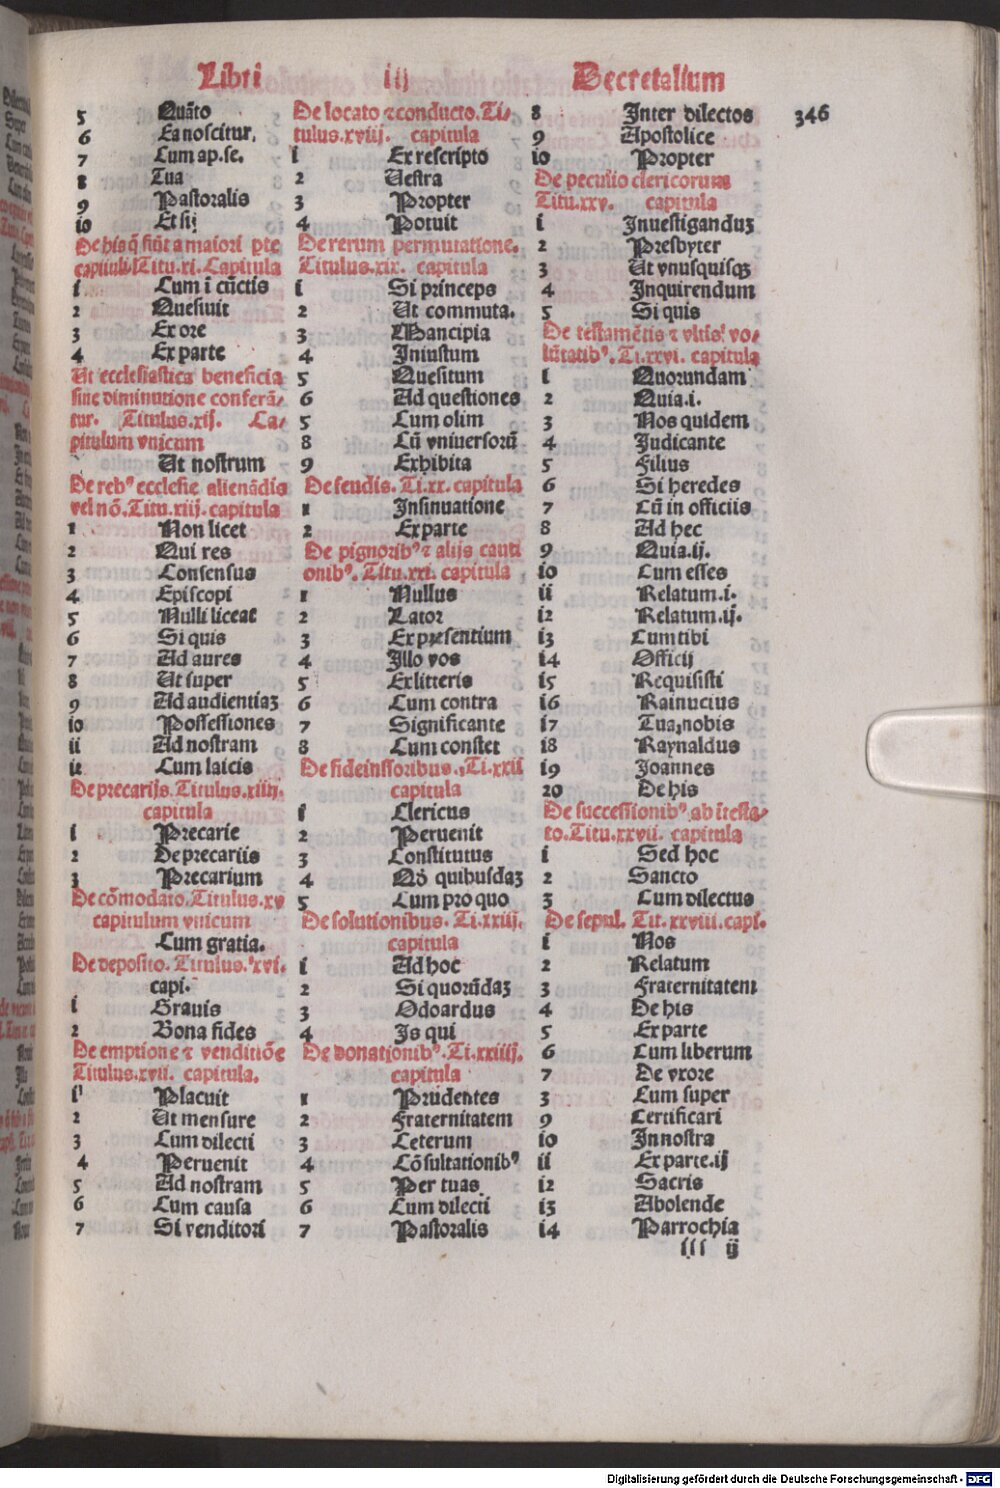 Libri iij Decretalium
346
5 Quāto
6 Ea noscitur.
7 Cum ap. se.
8 Tua
9 Pastoralis
io Et sij
De his q̄ fiūt a maiori pte
capituli. Titu. xi. Capitula
i Cum ī cūctis
2 Quesiuit
3 Ex ore
4 Ex parte
Ut ecclesiastica beneficia
sine diminutione conferā/
tur. Titulus. xij. Ca/
pitulum vnicum
Ut nostrum
De reb⁹ ecclesie alienādis
vel nō. Titu. xiij. capitula
1 Non licet
2 Qui res
3 Consensus
4 Episcopi
5 Nulli liceat
6 Si quis
7 Ad aures
8 Ut super
9 Ad audientiaꝫ
io Possessiones
ii Ad nostram
i2 Cum laicis
De precarijs. Titulus. xiiij.
capitula
i Precarie
2 De precariis
3 Precarium
De cōmodato. Titulus. xv
capitulum vnicum
Cum gratia.
De deposito. Titulus. xvi.
capi.
i Grauis
2 Bona fides
De emptione ⁊ venditiōe
Titulus. xvii. capitula.
i Placuit
2 Ut mensure
3 Cum dilecti
4 Peruenit
5 Ad nostram
6 Cum causa
7 Si venditori
De locato ⁊ conducto. Ti/
tulus. xviij. capitula
i Ex rescripto
2 Uestra
3 Propter
4 Potuit
De rerum permutatione.
Titulus. xix. capitula
i Si princeps
2 Ut commuta.
3 Mancipia
4 Iniustum
5 Quesitum
6 Ad questiones
5 Cum olim
8 Cū vniuersorū
9 Exhibita
De feudis. Ti. xx. capitula
1 Insinuatione
2 Ex parte
De pignorib⁹ ⁊ alijs cauti
onib⁹. Titu. xxi. capitula
1 Nullus
2 Lator
3 Ex presentium
4 Illo vos
5 Ex litteris
6 Cum contra
7 Significante
8 Cum constet
De fideiussoribus. Ti. xxii
capitula
i Clericus
2 Peruenit
3 Constitutus
4 Qō quibusdaꝫ
5 Cum pro quo
De solutionibus. Ti. xxiij.
capitula
i Ad hoc
2 Si quorūdaꝫ
3 Odoardus
4 Is qui
De donationib⁹. Ti. xxiiij.
capitula
1 Prudentes
2 Fraternitatem
3 Ceterum
4 Cōsultationib⁹
5 Per tuas
6 Cum dilecti
7 Pastoralis
8 Inter dilectos
9 Apostolice
io Propter
De peculio clericorum
Titu. xxv. capitula
i Inuestiganduꝫ
2 Presbyter
3 Ut vnusquisqꝫ
4 Inquirendum
5 Si quis
De testamētis ⁊ vltis vo/
lūtatib⁹. Ti. xxvi. capitula
1 Quorundam
2 Quia. i.
3 Nos quidem
4 Iudicante
5 Filius
6 Si heredes
7 Cū in officiis
8 Ad hec
9 Quia. ij.
io Cum esses
ii Relatum. i.
i2 Relatum. ij.
i3 Cum tibi
i4 Officij
i5 Requisisti
i6 Rainucius
i7 Tua nobis
i8 Raynaldus
i9 Joannes
20 De his
De successionib⁹ ab ītesta/
to. Titu. xxvii. capitula
i Sed hoc
2 Sancto
3 Cum dilectus
De sepul. Tit. xxviii. capi.
i Nos
2 Relatum
3 Fraternitatem
4 De his
5 Ex parte
6 Cum liberum
7 De vxore
3 Cum super
9 Certificari
io In nostra
ii Ex parte. ij
i2 Sacris
i3 Abolende
i4 Parrochia
iii ij
Digitalisierung gefördert durch die Deutsche Forschungsgemeinschaft - DFG